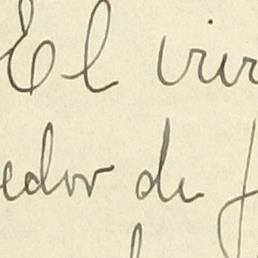 El vir
edor de f